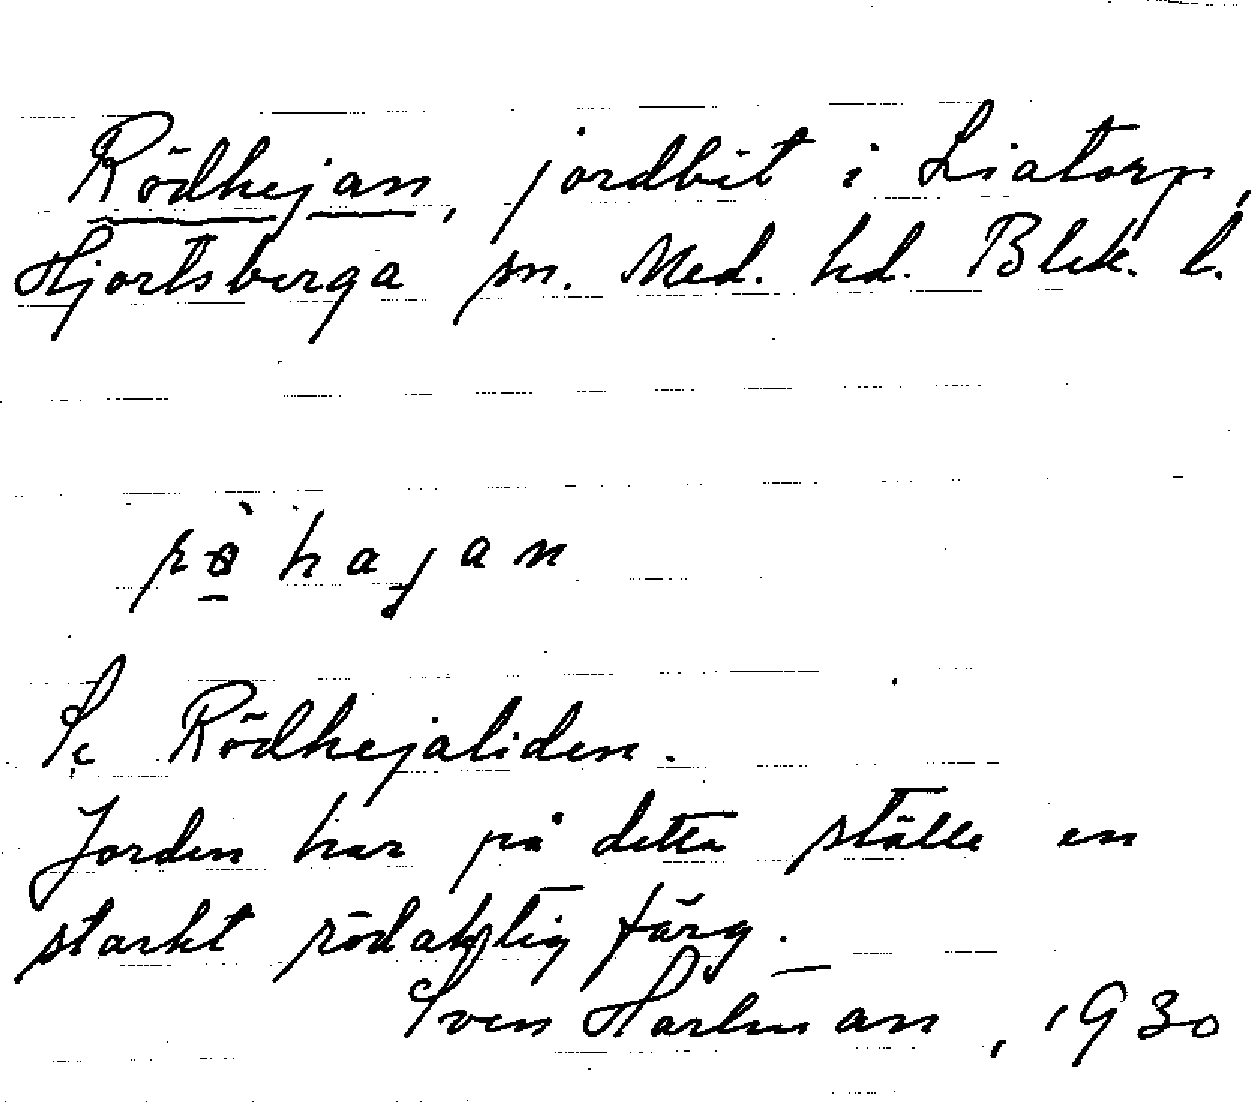 Rödhejan, jordbit i Liatorp,
Hjortsberga sn. Med. hd. Blek. l.
hajan
Se Rödhejaliden.
Jorden har på detta ställe en
starkt rödaktig färg.
Sven Hartman, 1930